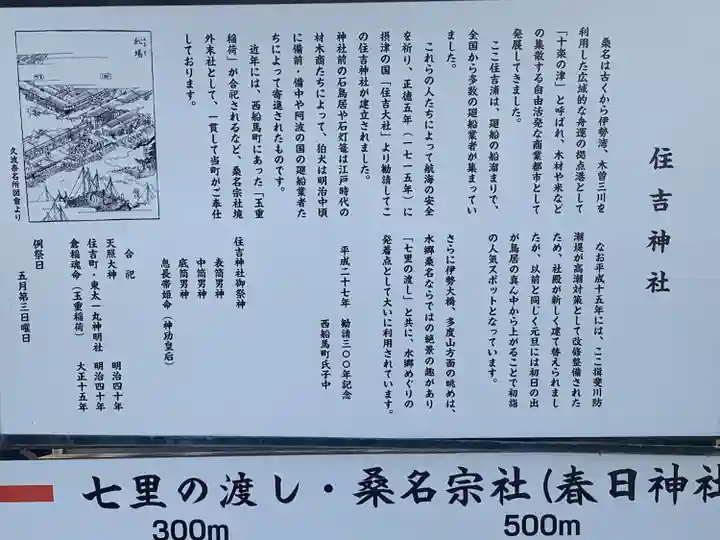 住吉神社
桑名は古くから伊勢湾、木曽三川を
利用した広域的な舟運の拠点港として
「十楽の津」と呼ばれ、木材や米など
の集散する自由活発な商業都市として
発展してきました。
ここ住吉浦は、廻船の船溜まりで、
全国から多数の廻船業者が集まってい
ました。
これらの人たちによって航海の安全
を祈り、正徳五年(一七一五年)に
摂津の国「住吉大社」より勧請してこ
の住吉神社が建立されました。
神社前の石鳥居や石灯篭は江戸時代の
材木商たちによって、狛犬は明治中頃
に備前・備中や阿波の国の廻船業者た
ちによって寄進されたものです。
近年には、西船馬町にあった「玉重
稲荷」が合祀されるなど、桑名宗社境
外末社として、一貫して当町がご奉仕
しております。
久波奈名所図會より
船場
なお平成十五年には、ここ揖斐川防
潮堤が高潮対策として改修整備された
ため、社殿が新しく建て替えられまし
たが、以前と同じく元旦には初日の出
が鳥居の真ん中から上がることで初詣
の人気スポットとなっています。
さらに伊勢大橋、多度山方面の眺めは、
水郷桑名ならではの絶景の趣があり
「七里の渡し」と共に、水郷めぐりの
発着点として大いに利用されています。
平成二十七年 勧請三〇〇年記念
西船馬町氏子中
住吉神社御祭神
表筒男神
中筒男神
底筒男神
息長帯姫命(神功皇后)
合祀
天照大神 明治四十年
住吉町・東太一丸神明社 明治四十年
倉稲魂命(玉重稲荷) 大正十五年
例祭日 五月第三日曜日
七里の渡し・桑名宗社(春日神社
300m 500m